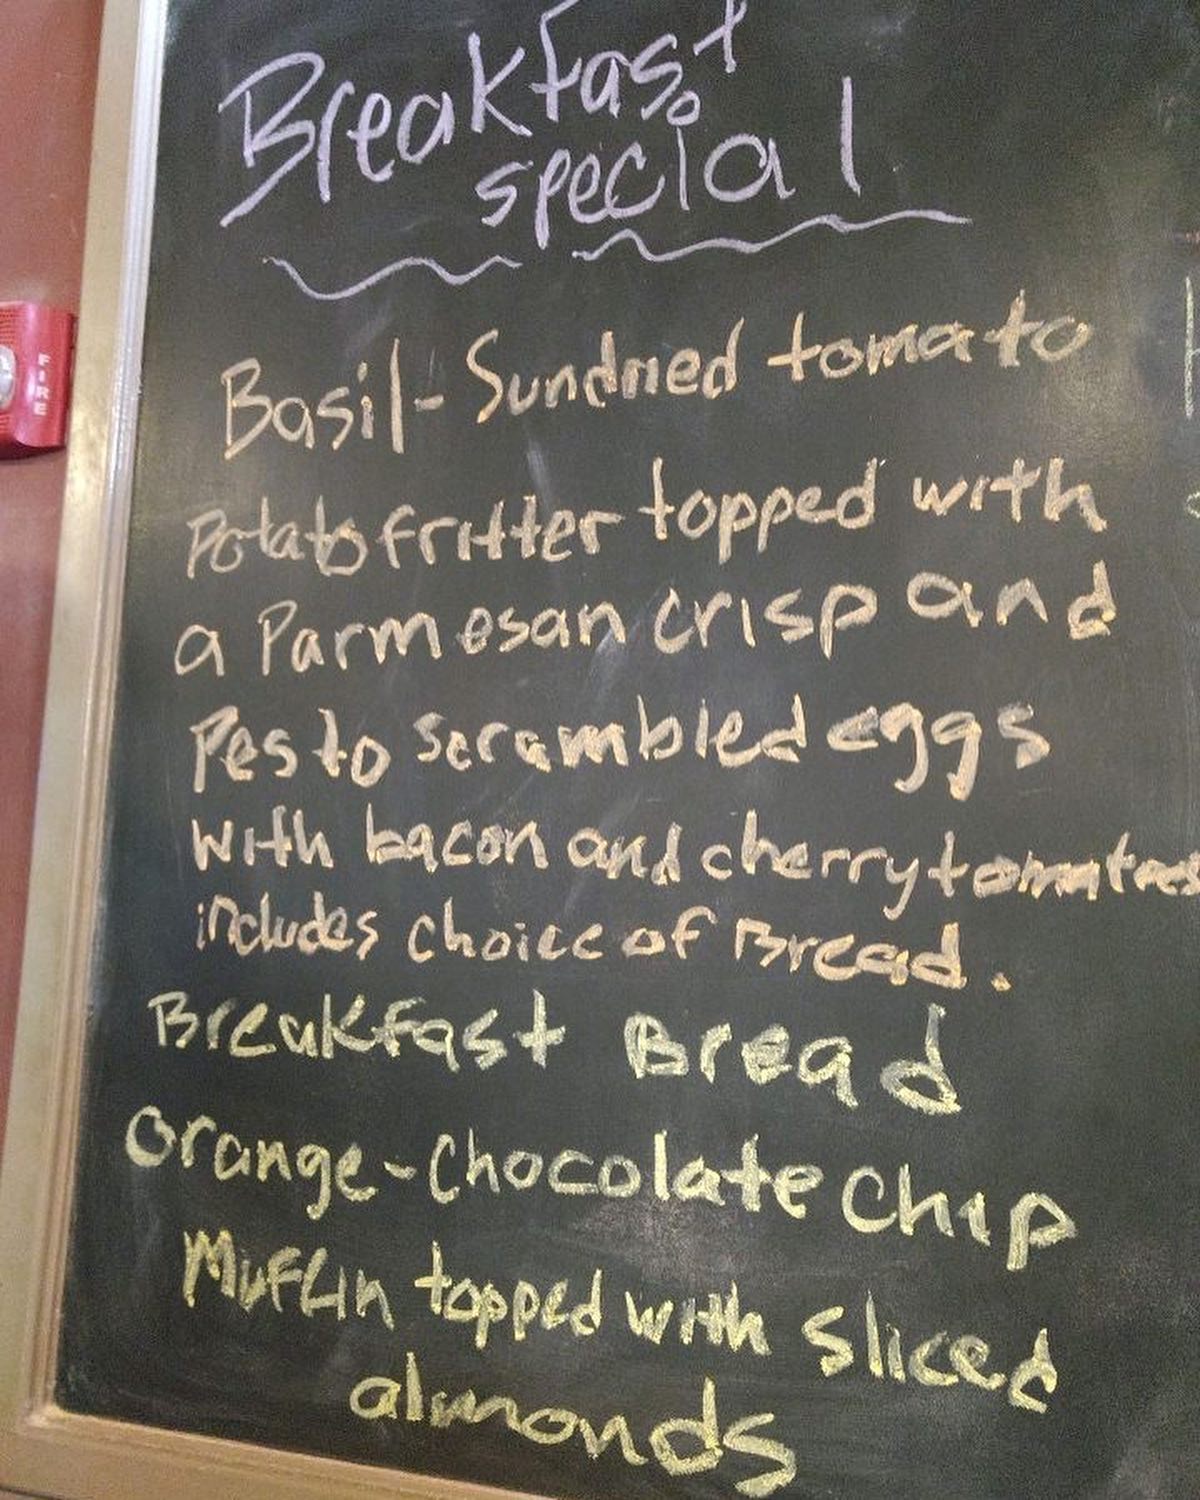 Breakfast
special
Basil-Sundried tomato
Potato fritter topped with
a Parmesan crisp and
Pesto scrambled eggs
with bacon and cherry tomatoes
includes choice of Bread.
Breakfast Bread
Orange-Chocolate Chip
Muffin topped with sliced
almonds
FIRE